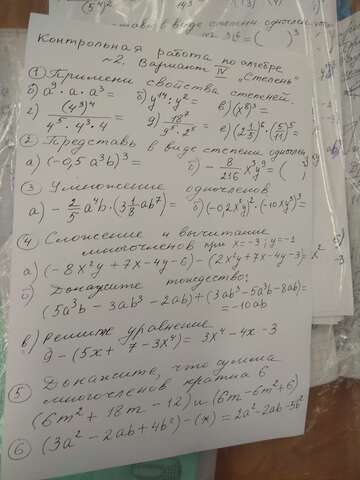 (5⁴)²
-тавь в виде степени одночлен
х³б = ( )³
Контрольная работа по алгебре
~2. Вариант IV „Степень"
① Примени свойства степеней.
б) а⁹ · а · а³ = б) y¹⁴ : y² = в) (x⁸)³ =
г) (4³)⁴ / 4⁵ · 4³ · 4 = д) 18⁷ / 9⁵ · 2⁵ = е) (2 1/5)⁶ · (5/11)⁵ =
② Представь в виде степени одночлен
а) (-0,5 a³b)³ = б) - 8/216 x³y⁹ = ( )³
③ Умножение одночленов
а) - 2/5 a⁴b · (3 1/8 ab⁷) = б) (-0,2x⁴y)² · (-10xy³)³
④ Сложение и вычитание
многочленов при x = -3; y = -1
а) (-8x²y + 7x - 4y - 6) - (2x²y + 7x - 4y - 3) =
б) Докажите тождество:
(5a³b - 3ab³ - 2ab) + (3ab³ - 5a³b - 8ab) =
= -10ab
в) Решите уравнение
9 - (5x + 7 - 3x⁴) = 3x⁴ - 4x - 3
⑤ Докажите, что сумма
многочленов кратна 6
(6m² + 18m - 12) и (6m - 6m² + 6)
⑥ (3a² - 2ab + 4b²) - (*) = 2a² - 2ab - 5b²